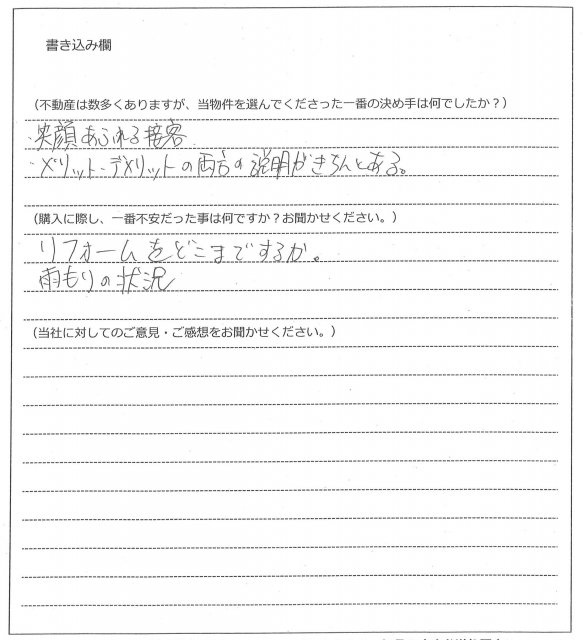 書き込み欄
(不動産は数多くありますが、当物件を選んでくださった一番の決め手は何でしたか?)
・笑顔あふれる接客
・メリット・デメリットの両方の説明がきちんとある。
(購入に際し、一番不安だった事は何ですか?お聞かせください。)
リフォームをどこまでするか。
雨もりの状況
(当社に対してのご意見・ご感想をお聞かせください。)